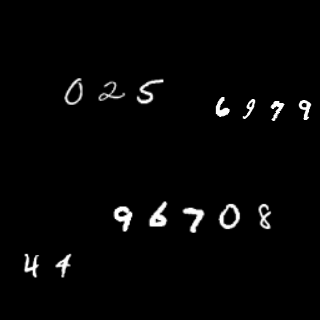 025
6979
96708
44